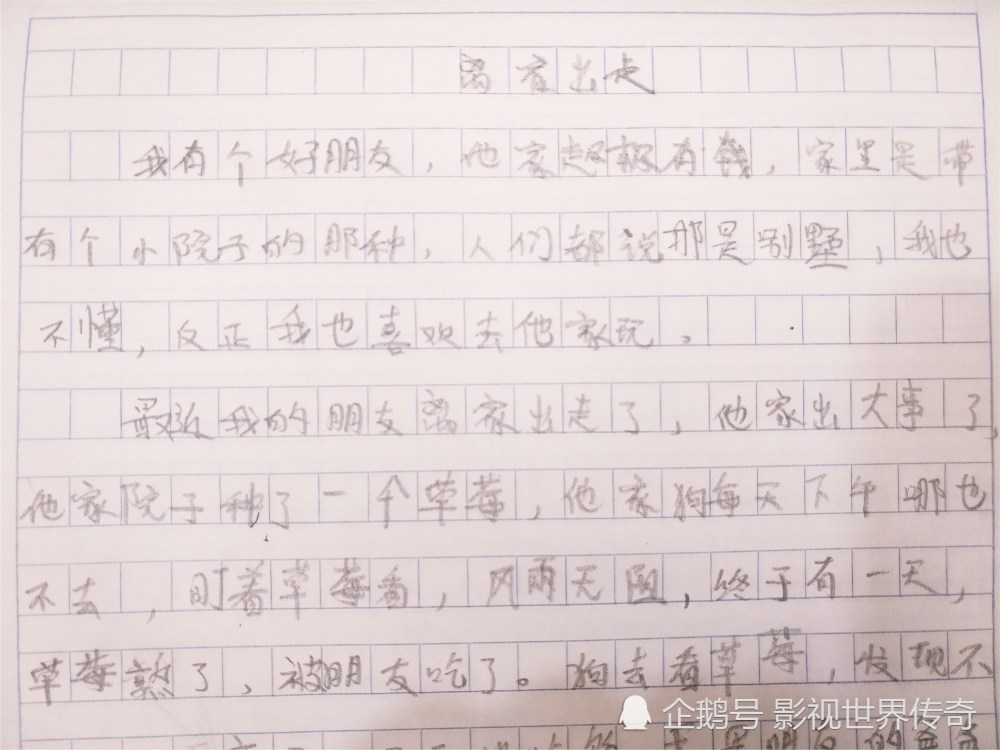 离家出走
我有个好朋友，他家超级有钱，家里是带
有个小院子的那种，人们都说那是别墅，我也
不懂，反正我也喜欢去他家玩。
最近我的朋友离家出走了，他家出大事了，
他家院子种了一个草莓，他家狗每天下午哪也
不去，盯着草莓看，风雨无阻，终于有一天，
草莓熟了，被朋友吃了。狗去看草莓，发现不
企鹅号 影视世界传奇